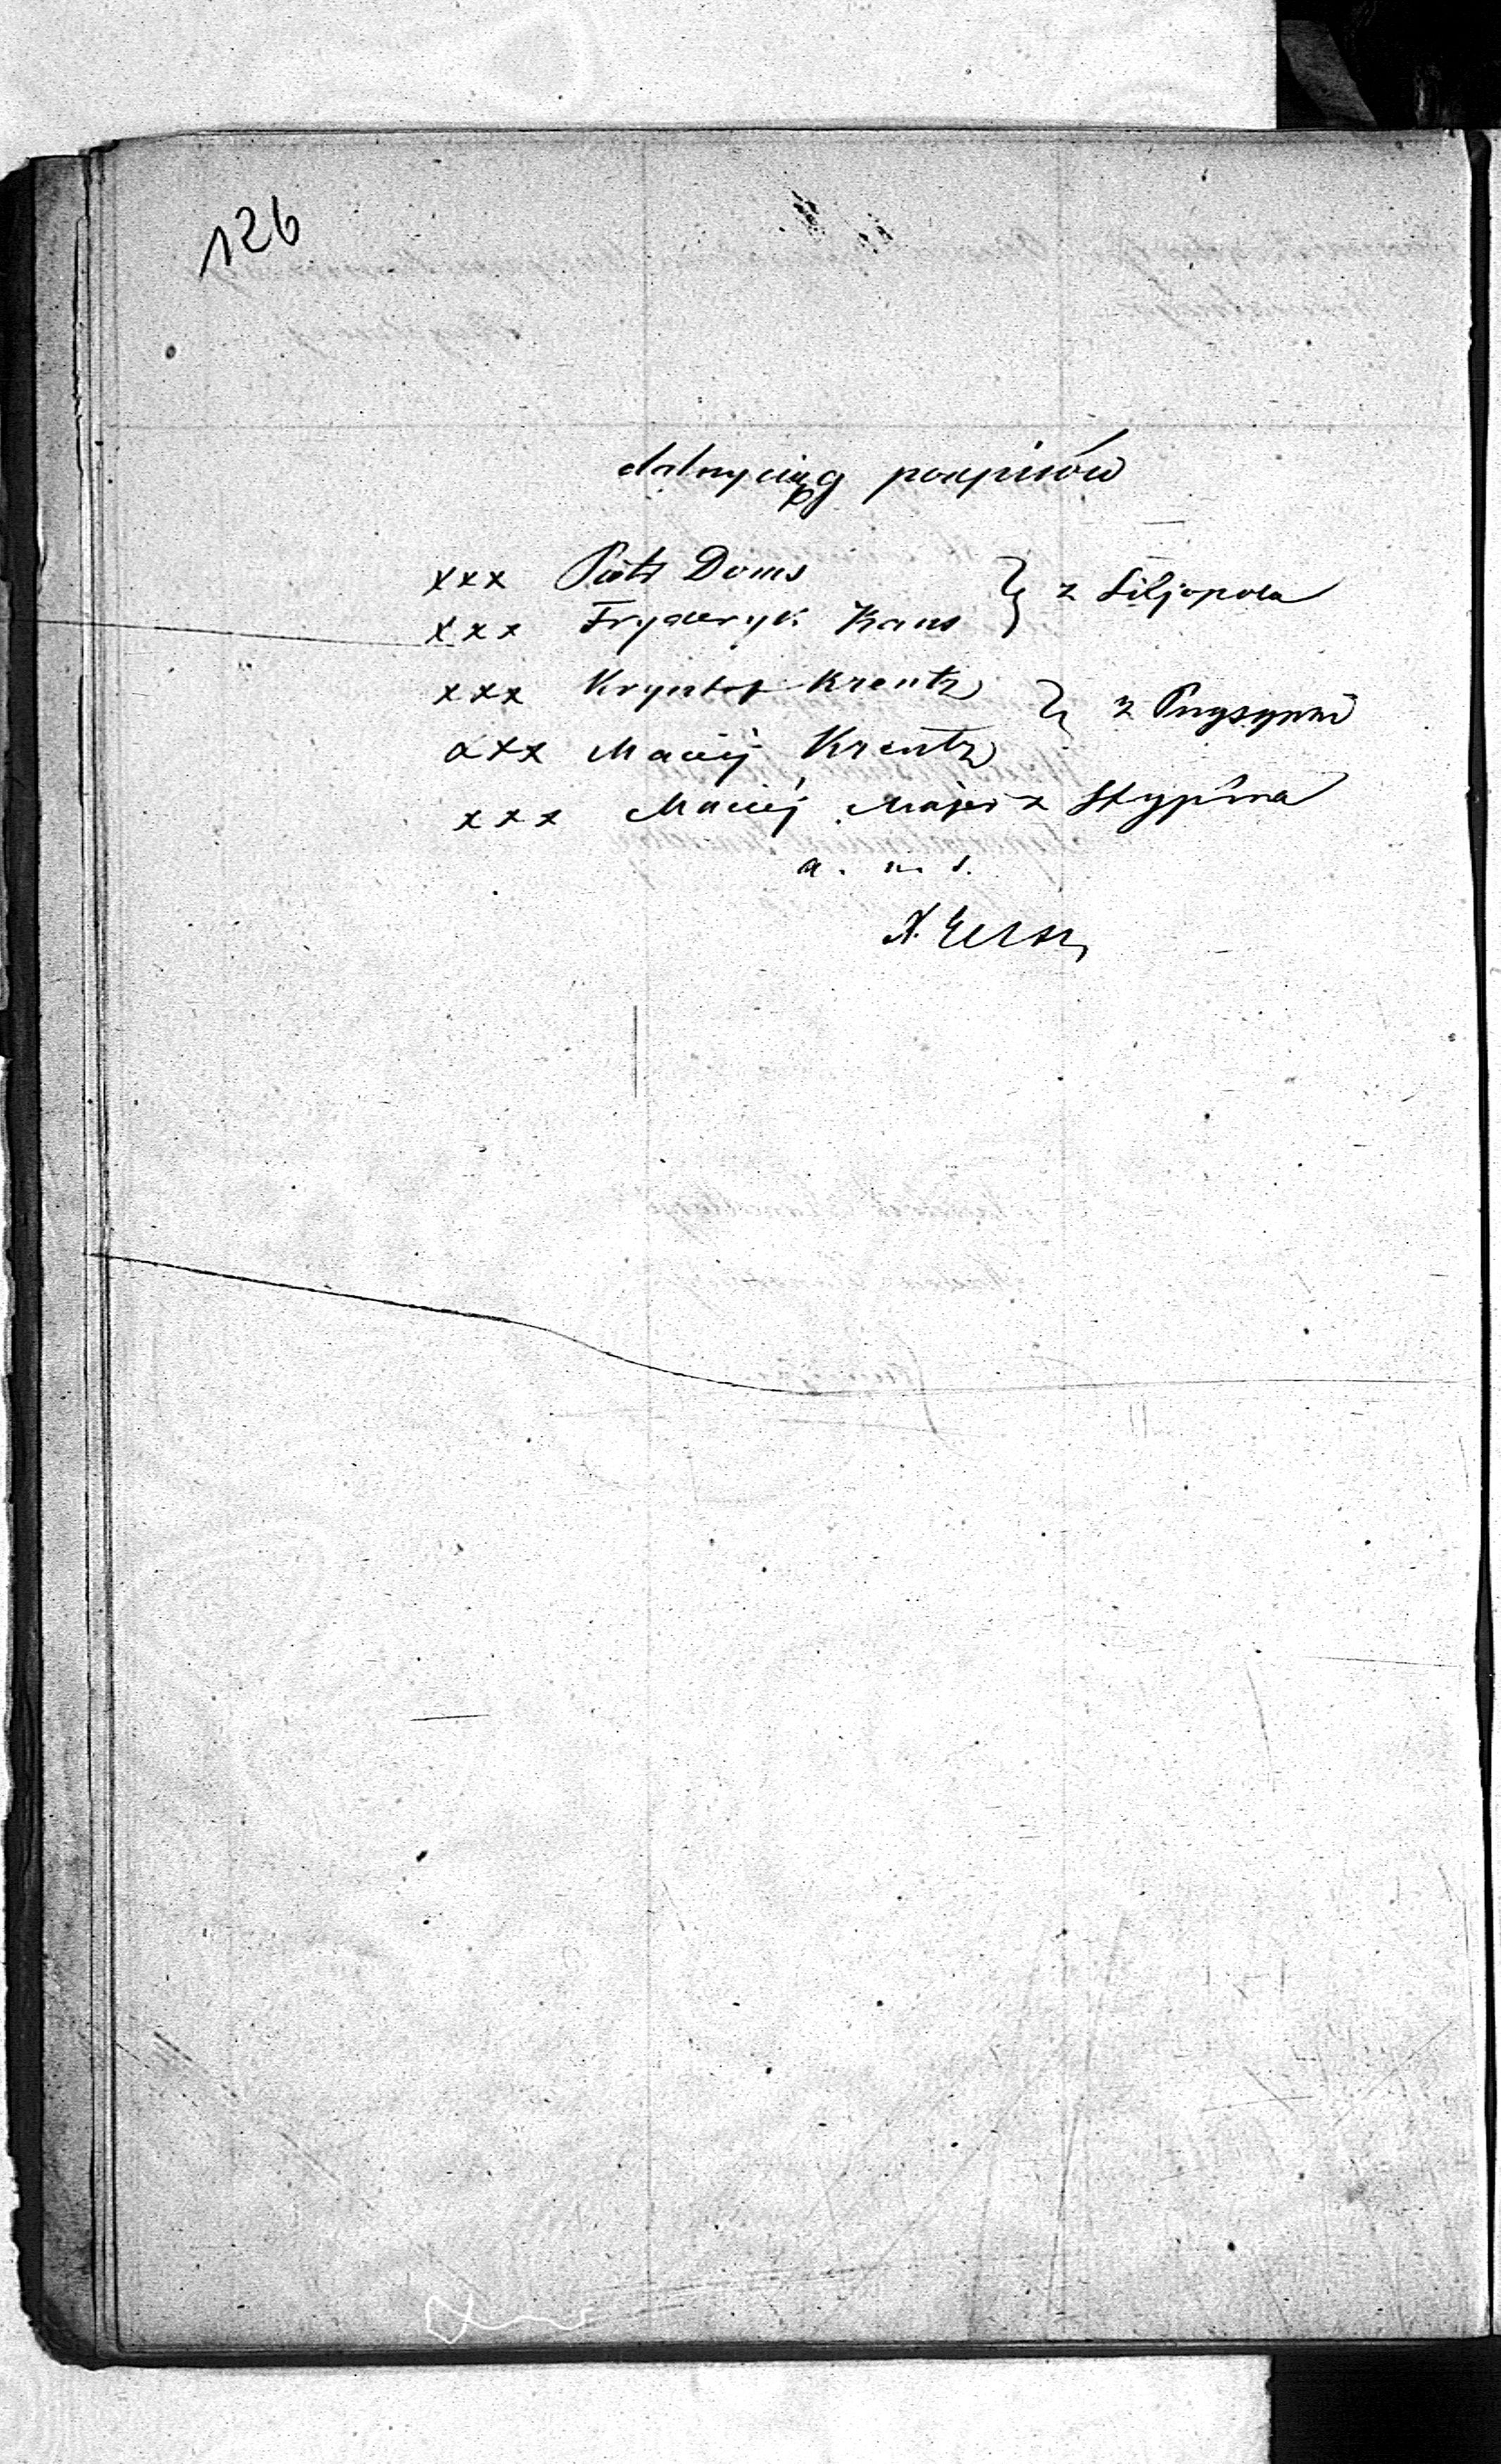 126
dalszy ciąg podpisów
xxx Piotr Doms
xxx Fryderyk Kaus } z Siljopola
xxx Krysztof Kreutz
xxx Maciej Kreutz } z Przysypni
xxx Maciej Majer z Stypina
a. m. s.